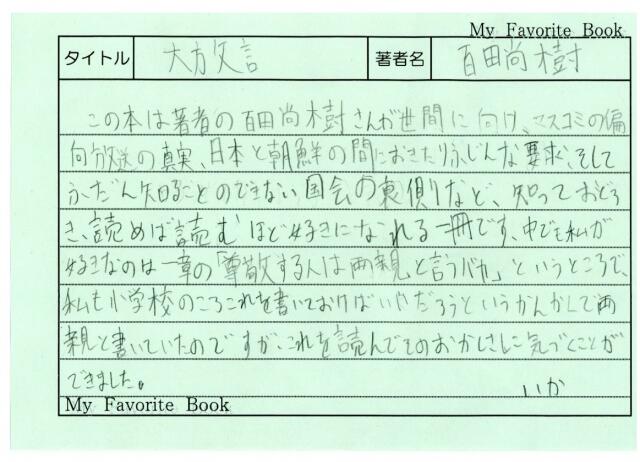 My Favorite Book
タイトル 大放言 著者名 百田尚樹
この本は著者の百田尚樹さんが世間に向け、マスコミの偏
向放送の真実、日本と朝鮮の間におきたりふじんな要求、そして
ふだん知ることのできない国会の裏側など、知っておどろ
き、読めば読むほど好きになれる一冊です、中でも私が
好きなのは一章の「尊敬する人は両親と言うバカ」というところで、
私も小学校のころこれを書いておけばいいだろうというかんかくで両
親と書いていたのですが、これを読んでそのおかしさに気づくことが
できました。 いか
My Favorite Book